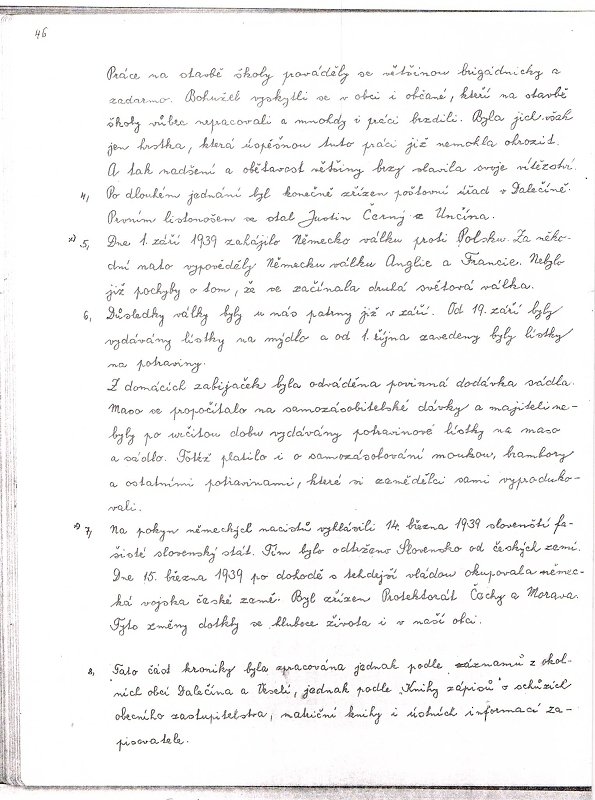 46
Práce na stavbě školy prováděly se většinou brigádnicky a
zadarmo. Bohužel vyskytli se v obci i občané, kteří na stavbě
školy vůbec nepracovali a mnohdy i práci brzdili. Byla jich však
jen hrstka, která úspěšnou tuto práci již nemohla ohrozit.
A tak nadšení a obětavost většiny brzy slavila svoje vítězství.
4, Po dlouhém jednání byl konečně zřízen poštovní úřad v Dalečíně.
Prvním listonošem se stal Justin Černý z Unčína.
x) 5, Dne 1. září 1939 zahájilo Německo válku proti Polsku. Za něko-
dní nato vypověděly Německu válku Anglie a Francie. Nebylo
již pochyby o tom, že se začínala druhá světová válka.
6, Důsledky války byly u nás patrny již v září. Od 19. září byly
vydávány lístky na mýdlo a od 1. října zavedeny byly lístky
na potraviny.
Z domácích zabijaček byla odváděna povinná dodávka sádla.
Maso se propočítalo na samozásobitelské dávky a majiteli ne-
byly po určitou dobu vydávány potravinové lístky na maso
a sádlo. Totéž platilo i o samozásobování moukou, brambory
a ostatními potravinami, které si zemědělci sami vyproduko-
vali.
x) 7, Na pokyn německých nacistů vyhlásili 14. března 1939 slovenští fa-
šisté slovenský stát. Tím bylo odtrženo Slovensko od českých zemí.
Dne 15. března 1939 po dohodě s tehdejší vládou okupovala němec-
ká vojska české země. Byl zřízen Protektorát Čechy a Morava.
Tyto změny dotkly se hluboce života i v naší obci.
8, Tato část kroniky byla zpracována jednak podle záznamů z okol-
ních obcí Dalečína a Veselí, jednak podle "Knihy zápisů" o schůzích
obecního zastupitelstva, matriční knihy i ústních informací za-
pisovatele.